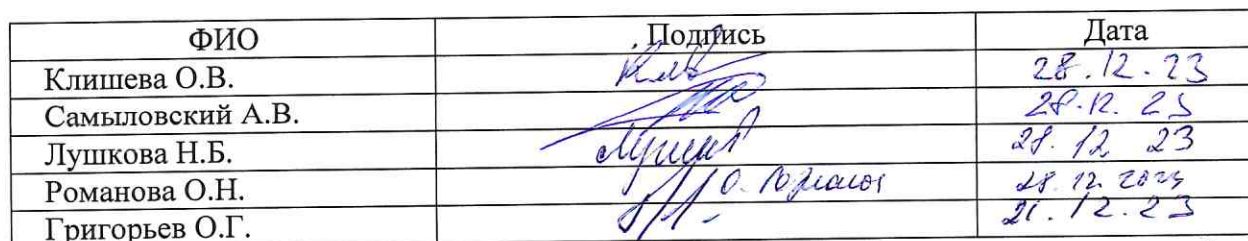 ФИО Подпись Дата
Клишева О.В. 28.12.23
Самыловский А.В. 28.12.23
Лушкова Н.Б. 28.12 23
Романова О.Н. 28.12.2023
Григорьев О.Г. 12.23